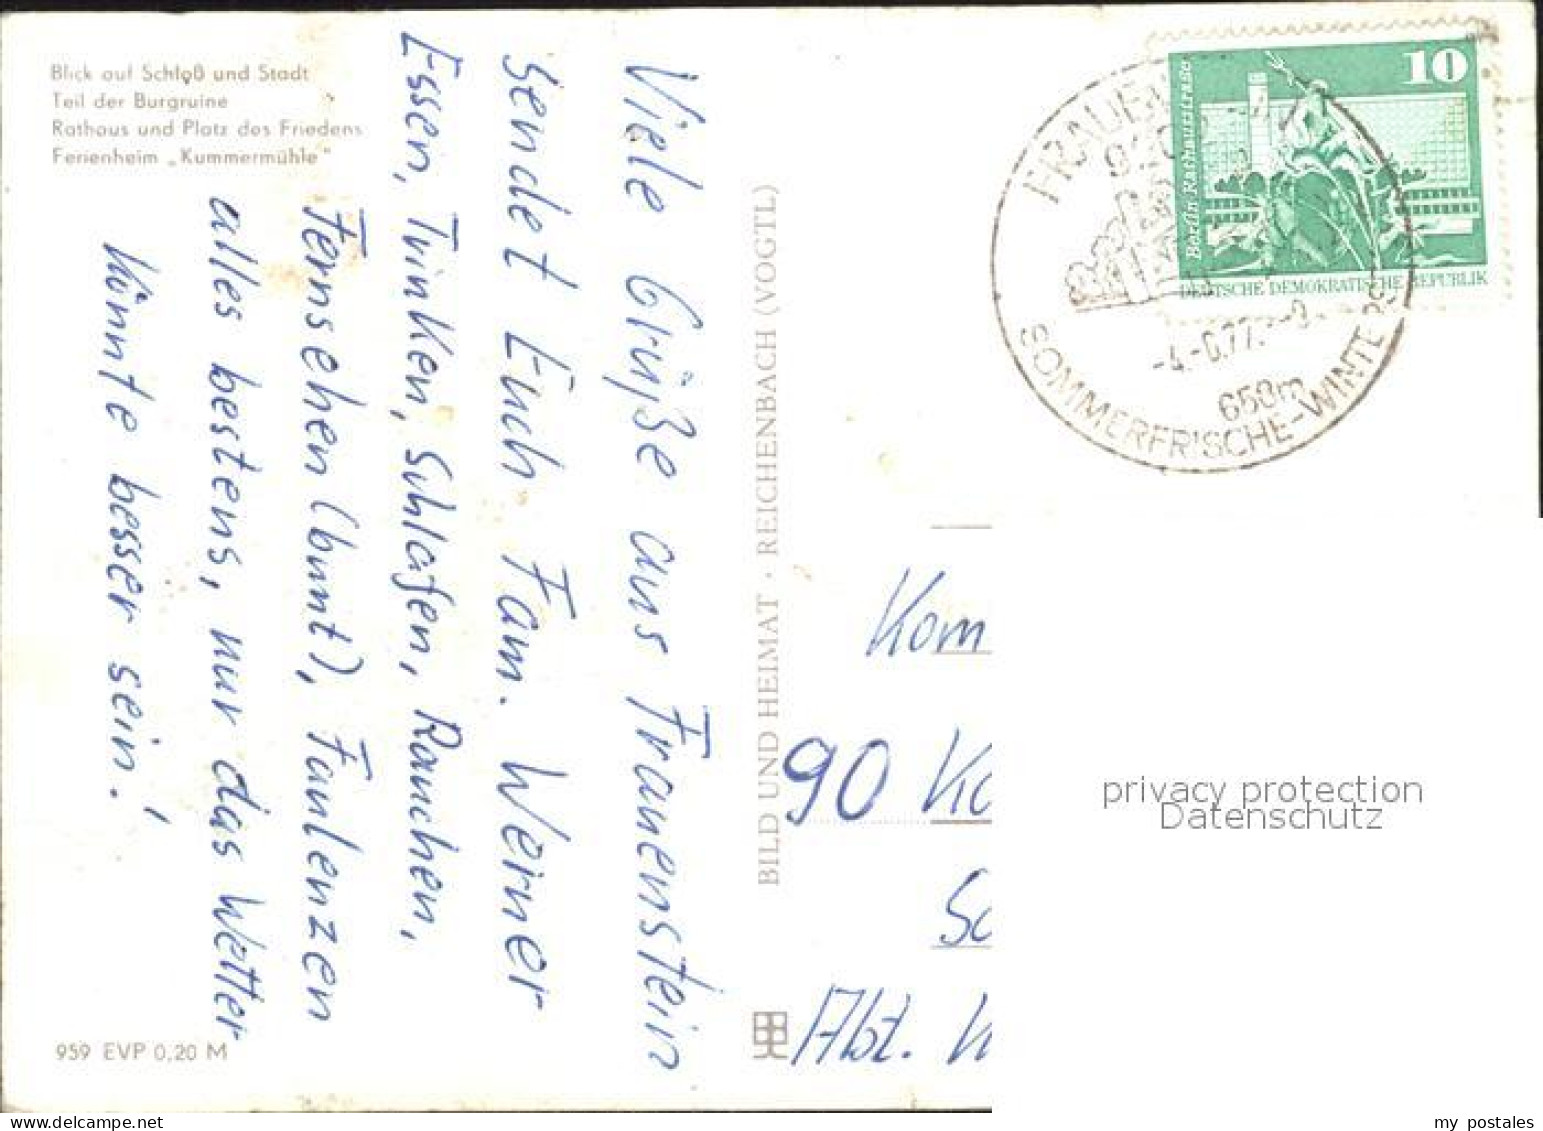 Blick auf Schloß und Stadt
Teil der Burgruine
Rathaus und Platz des Friedens
Ferienheim „Kummermühle"
Viele Grüße aus Frauenstein
sendet Euch Fam. Werner
Essen, Trinken, Schlafen, Rauchen,
Fernsehen (bunt), Faulenzen
alles bestens, nur das Wetter
könnte besser sein!
959 EVP 0,20 M
BILD UND HEIMAT · REICHENBACH (VOGTL)
10
Berlin Rathausstraße
DEUTSCHE DEMOKRATISCHE REPUBLIK
SOMMERFRISCHE-WINTERS
650m
Kom
90 Ka
Sc
Abt.
privacy protection
Datenschutz
my postales